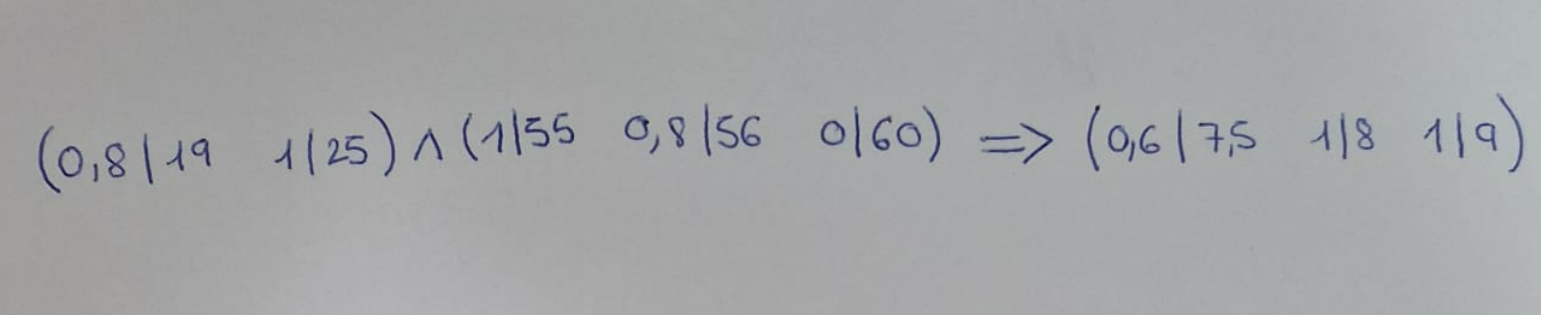 (0,8|19 1|25) ∧ (1|55 0,8|56 0|60) => (0,6|7,5 1|8 1|9)